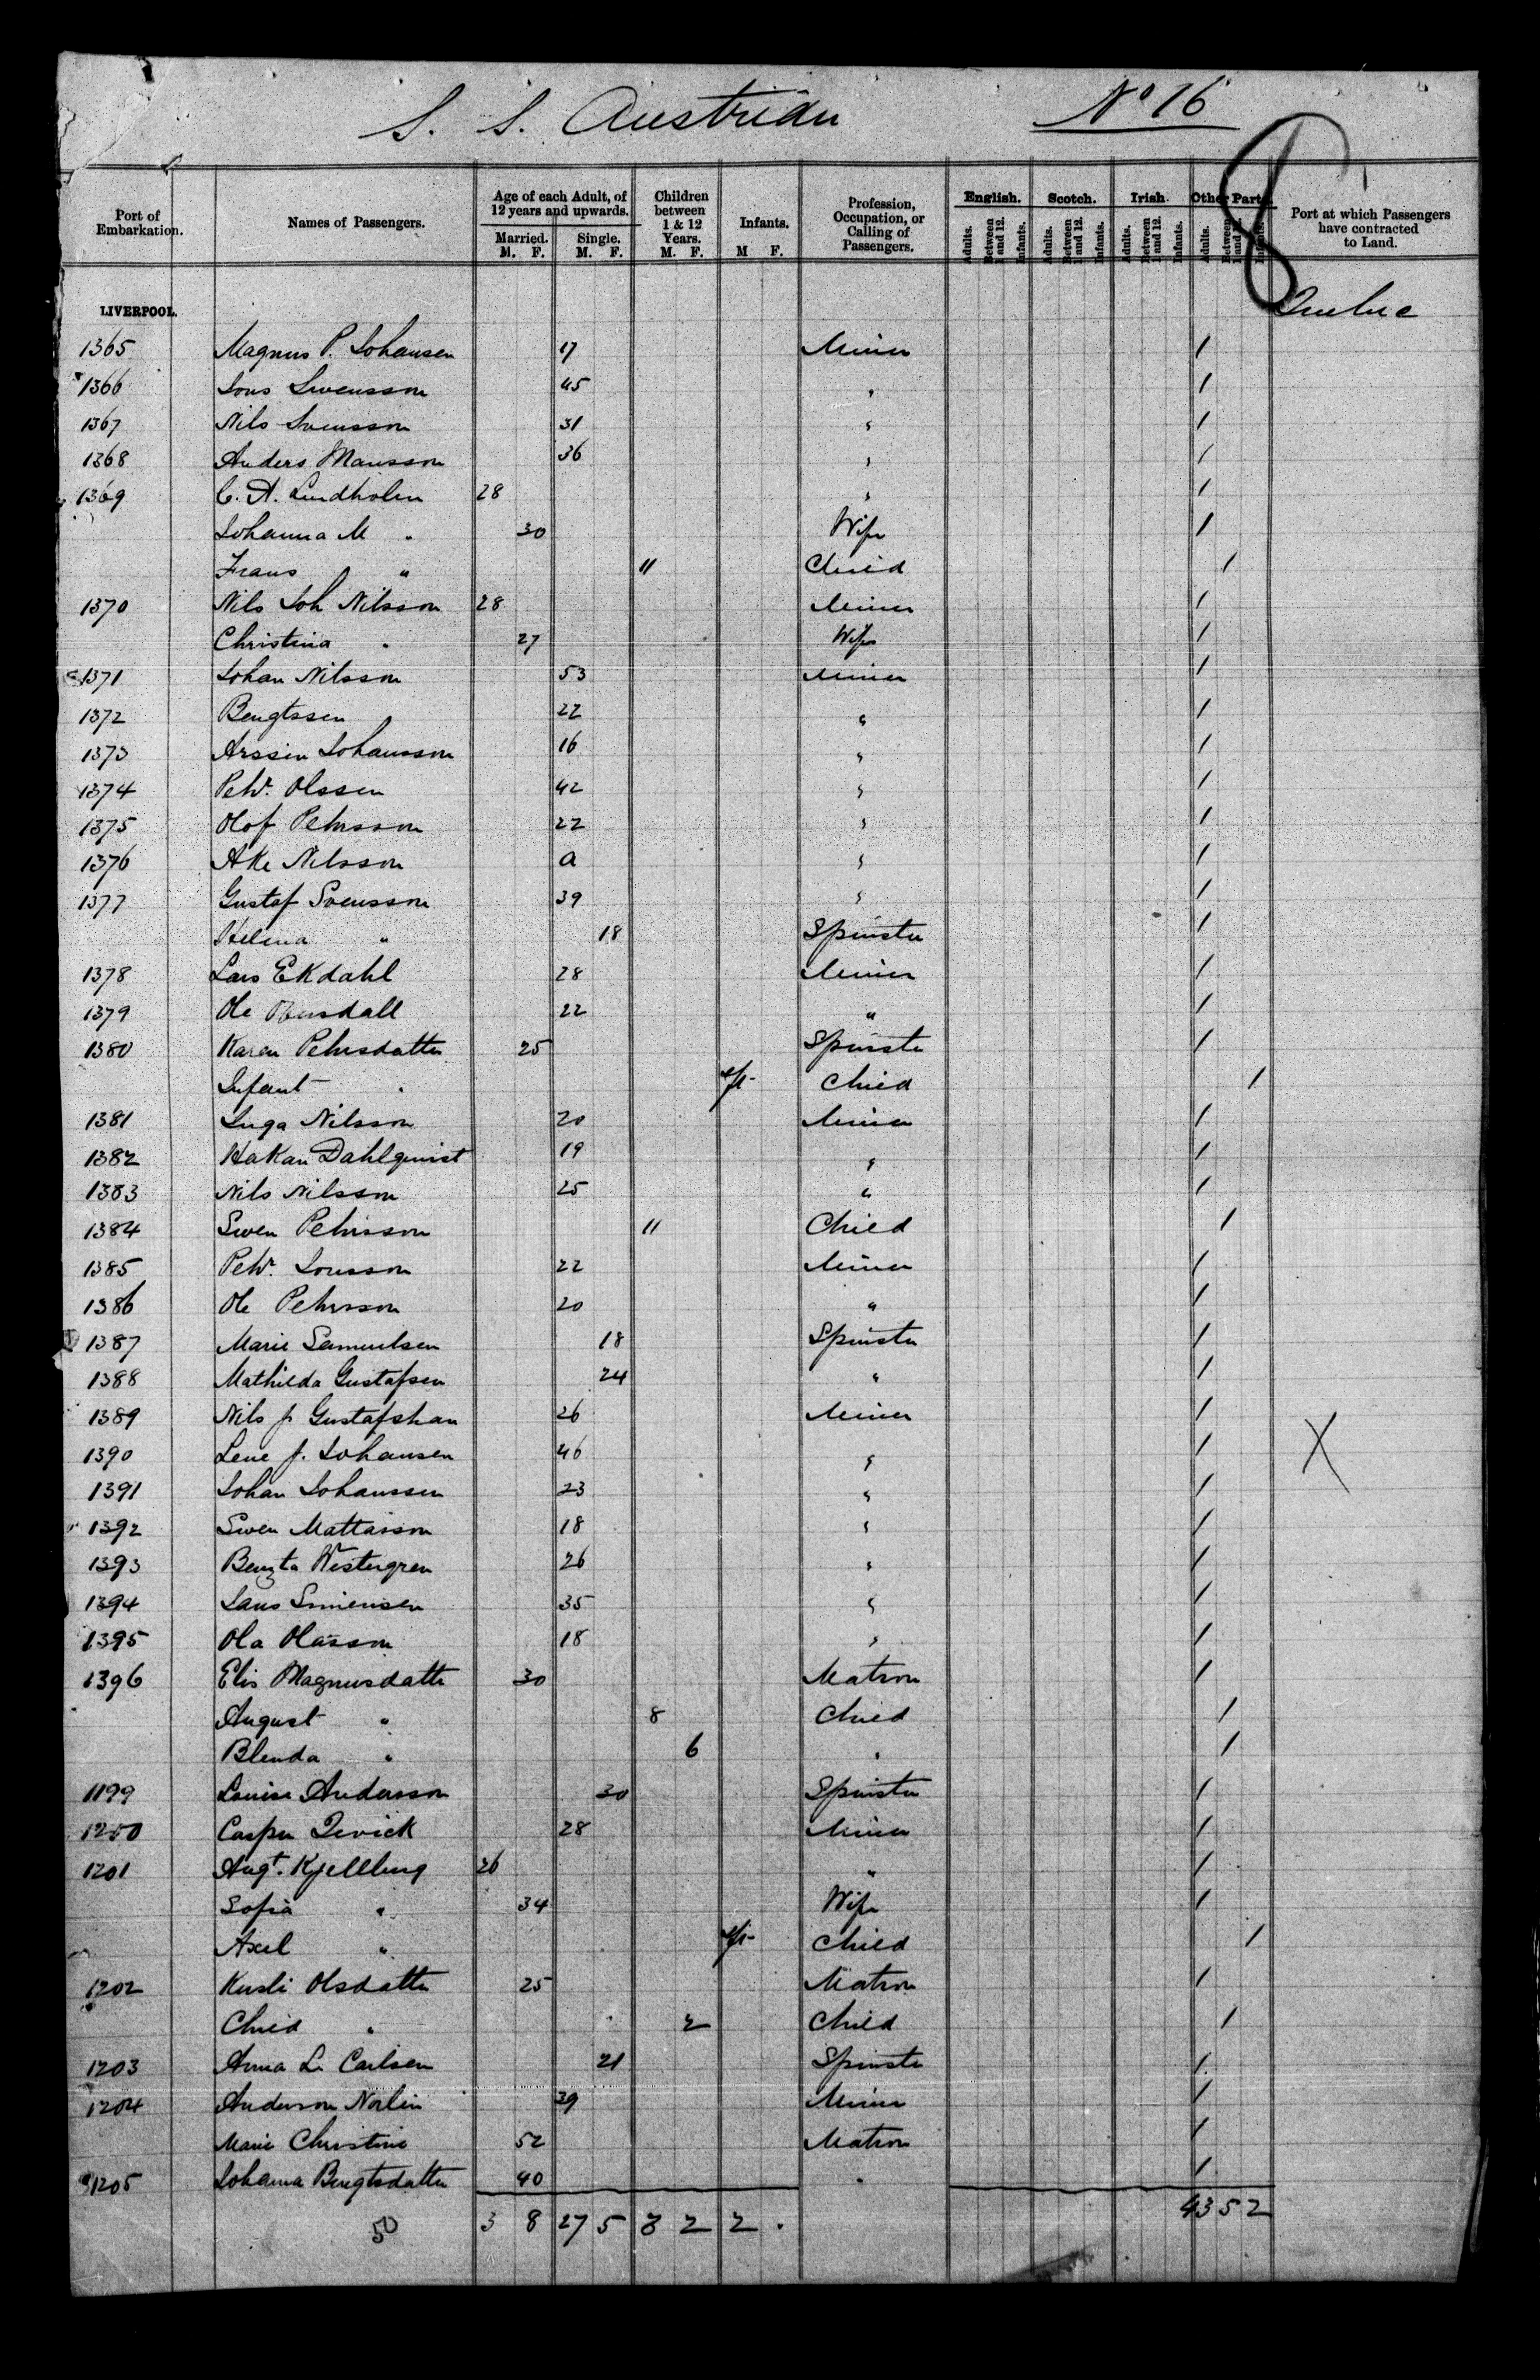 S. S. Austrian
No 16
Port of Embarkation.
Names of Passengers.
Age of each Adult, of 12 years and upwards.
Married. M. F.
Single. M. F.
Children between 1 & 12 Years. M. F.
Infants. M F.
Profession, Occupation, or Calling of Passengers.
English. Adults. Between 1 and 12. Infants.
Scotch. Adults. Between 1 and 12. Infants.
Irish. Adults. Between 1 and 12. Infants.
Other Parts. Adults. Between 1 and 12. Infants.
Port at which Passengers have contracted to Land.
LIVERPOOL. Quebec
1365 Magnus P. Johansen 17 Miner /
1366 Swensson 45 " /
1367 Nils Svensson 31 " /
1368 Anders Mansson 36 " /
1369 C. A. Lindholm 28 " /
Johanna M " 30 Wife /
Frans " 11 Child /
1370 Nils Joh Nilsson 28 Miner /
Christina " 27 Wife /
1371 Johan Nilsson 53 Miner /
1372 Bengtssen 22 " /
1373 Johansson 16 " /
1374 Pehr. Olssen 42 " /
1375 Olof Pehrsson 22 " /
1376 Ake Nilsson a " /
1377 Gustaf Svensson 39 " /
Helena " 18 Spinster /
1378 Lars Ekdahl 28 Miner /
1379 Ole 22 " /
1380 Karen Pehrsdatter 25 Spinster /
Infant " inft Child /
1381 Inga Nilsson 20 Miner /
1382 Hakan Dahlquist 19 " /
1383 Nils Nilsson 25 " /
1384 Swen Pehrsson 11 Child /
1385 Pehr. Jonsson 22 Miner /
1386 Ole Pehrsson 20 " /
1387 Marie Samuelsen 18 Spinster /
1388 Mathilda Gustafsen 24 " /
1389 Nils J Gustafshan 26 Miner /
1390 Lene J. Johansen 46 " / X
1391 Johan Johanssen 23 " /
1392 Swen Mattasson 18 " /
1393 Bengta Westergren 26 " /
1394 35 " /
1395 Ola Olasson 18 " /
1396 Elis Magnusdatter 30 Matron /
August " 8 Child /
Blenda " 6 " /
1199 Louise Andersson 30 Spinster /
1200 Casper 28 Miner /
1201 Augt. Kjellberg 26 " /
Sofia " 34 Wife /
Axel " inft Child /
1202 Olsdatter 25 Matron /
Child " 2 Child /
1203 Anna L. Carlsen 21 Spinster /
1204 Anderson Norlin 39 Miner /
Marie Christine 52 Matron /
1205 Johanna Bengtsdatter 40 " /
50 3 8 27 5 3 2 2 . 43 5 2